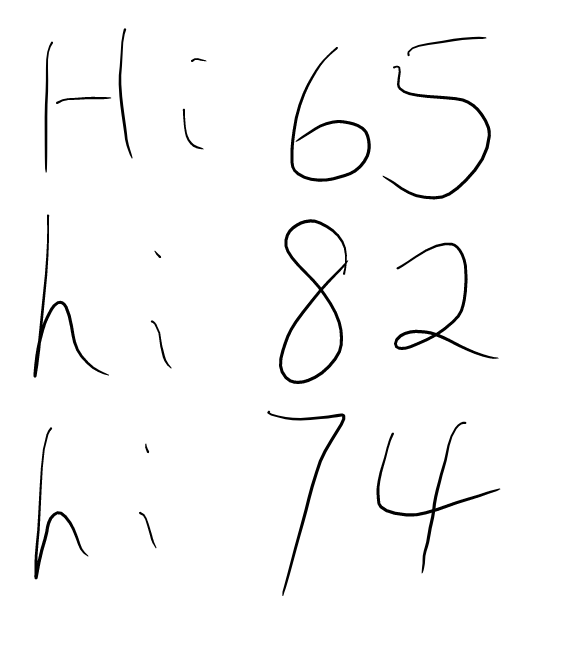 Hi 65
hi 82
hi 74